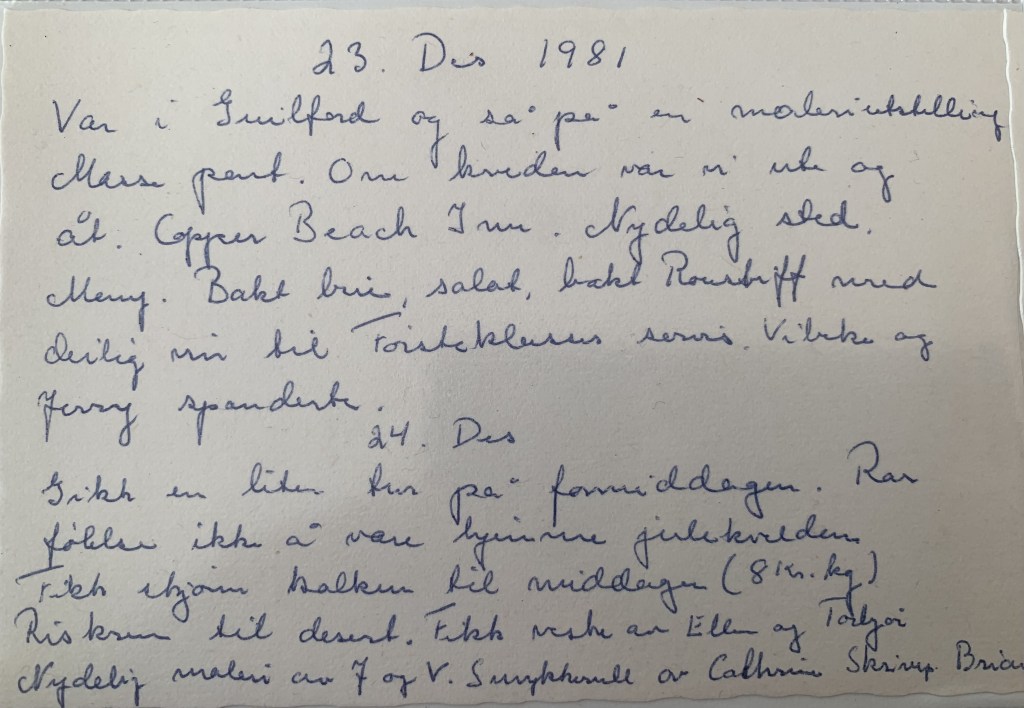 23. Des 1981
Var i Guilford og så på en maleriutstilling
Masse pent. Om kvelden var vi ute og
åt. Copper Beach Inn. Nydelig sted.
Meny. Bakt brie, salat, bakt Roastbiff med
deilig vin til Førsteklasses servis. Vibeke og
Jerry spanderte.
24. Des
Gikk en liten tur på formiddagen. Rar
følelse ikke å være hjemme julekvelden
Fikk skjønn kalkun til middagen (8 Kr. kg)
Riskrem til desert. Fikk veske av Ellen og
Nydelig maleri av J og V. Smykkeskrin av Cathrine Brian